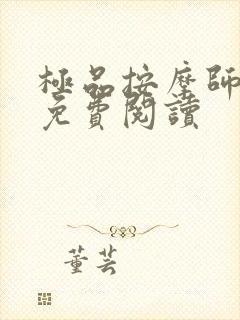 極品按摩師
免費閱讀
董芸